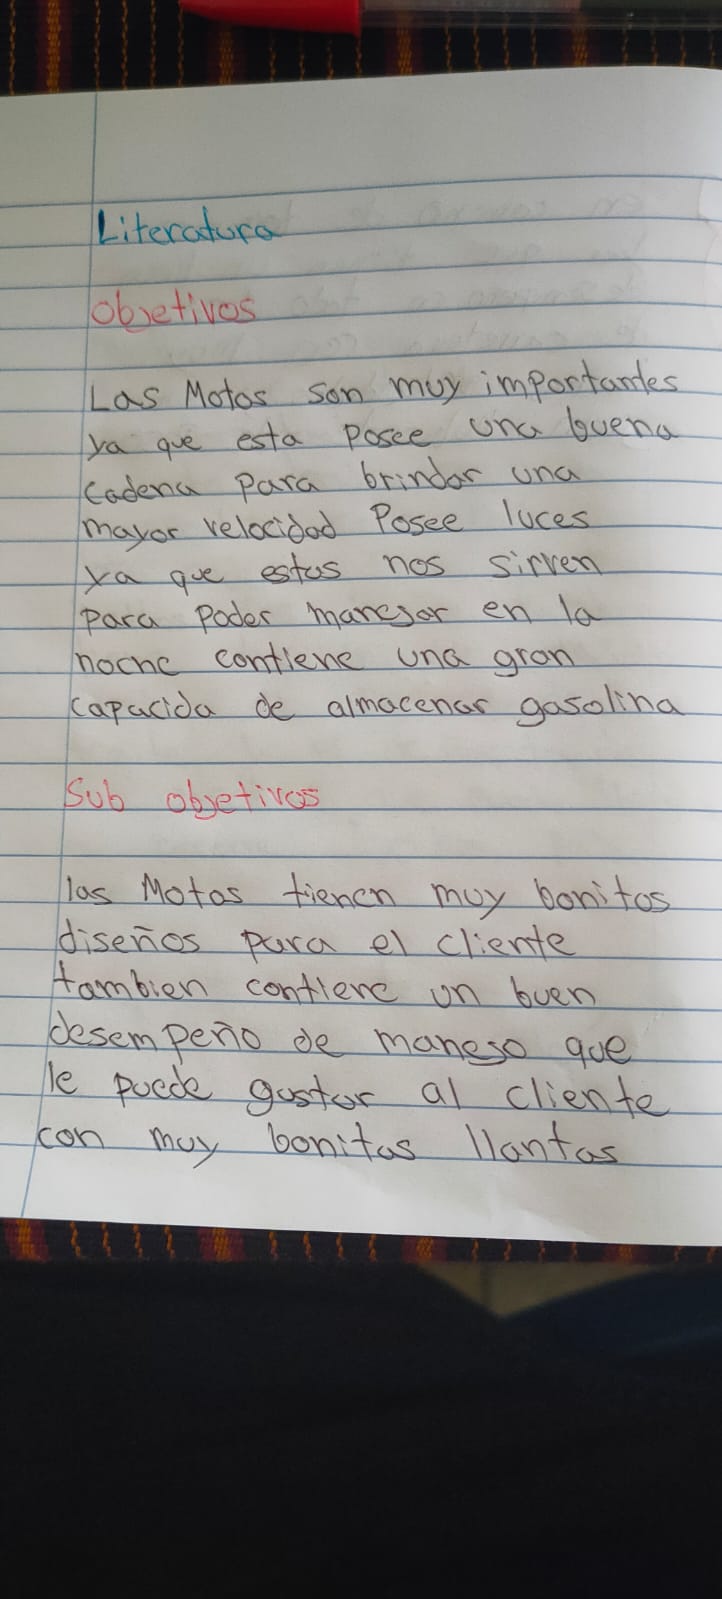 Literatura
Objetivos
Las Motos son muy importantes
ya que esta posee una buena
cadena para brindar una
mayor velocidad Posee luces
ya que estas nos sirven
para poder manejar en la
noche contiene una gran
capacida de almacenar gasolina
Sub objetivos
las Motos tienen muy bonitos
diseños para el cliente
tambien contiene un buen
desempeño de manejo que
le puede gustar al cliente
con muy bonitas llantas